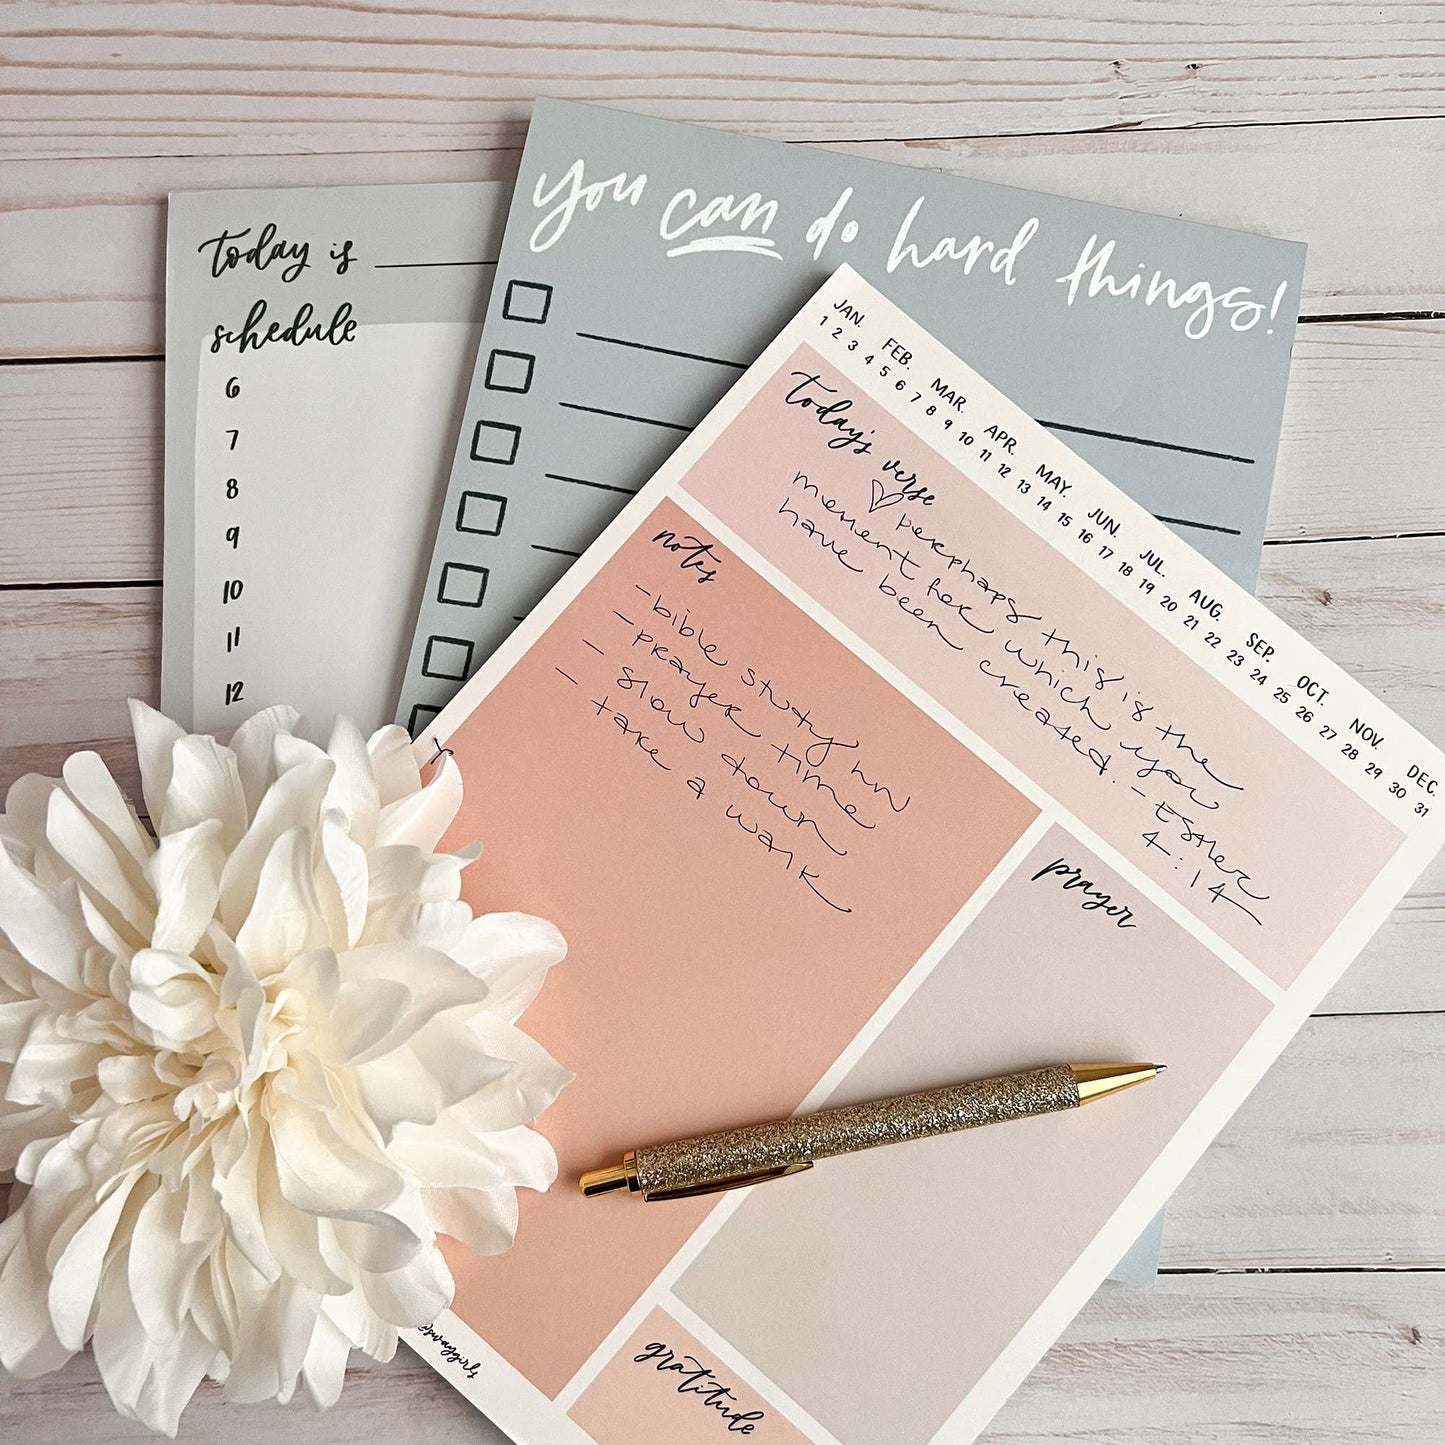 today is
schedule
6
7
8
9
10
11
12
you can do hard things!
JAN. FEB. MAR. APR. MAY. JUN. JUL. AUG. SEP. OCT. NOV. DEC.
1 2 3 4 5 6 7 8 9 10 11 12 13 14 15 16 17 18 19 20 21 22 23 24 25 26 27 28 29 30 31
today's verse
perphaps this is the
moment for which you
have been created. - Esther
4:14
notes
- bible study hw
- prayer time
- slow down
- take a walk
prayer
gratitude
@swaggirls